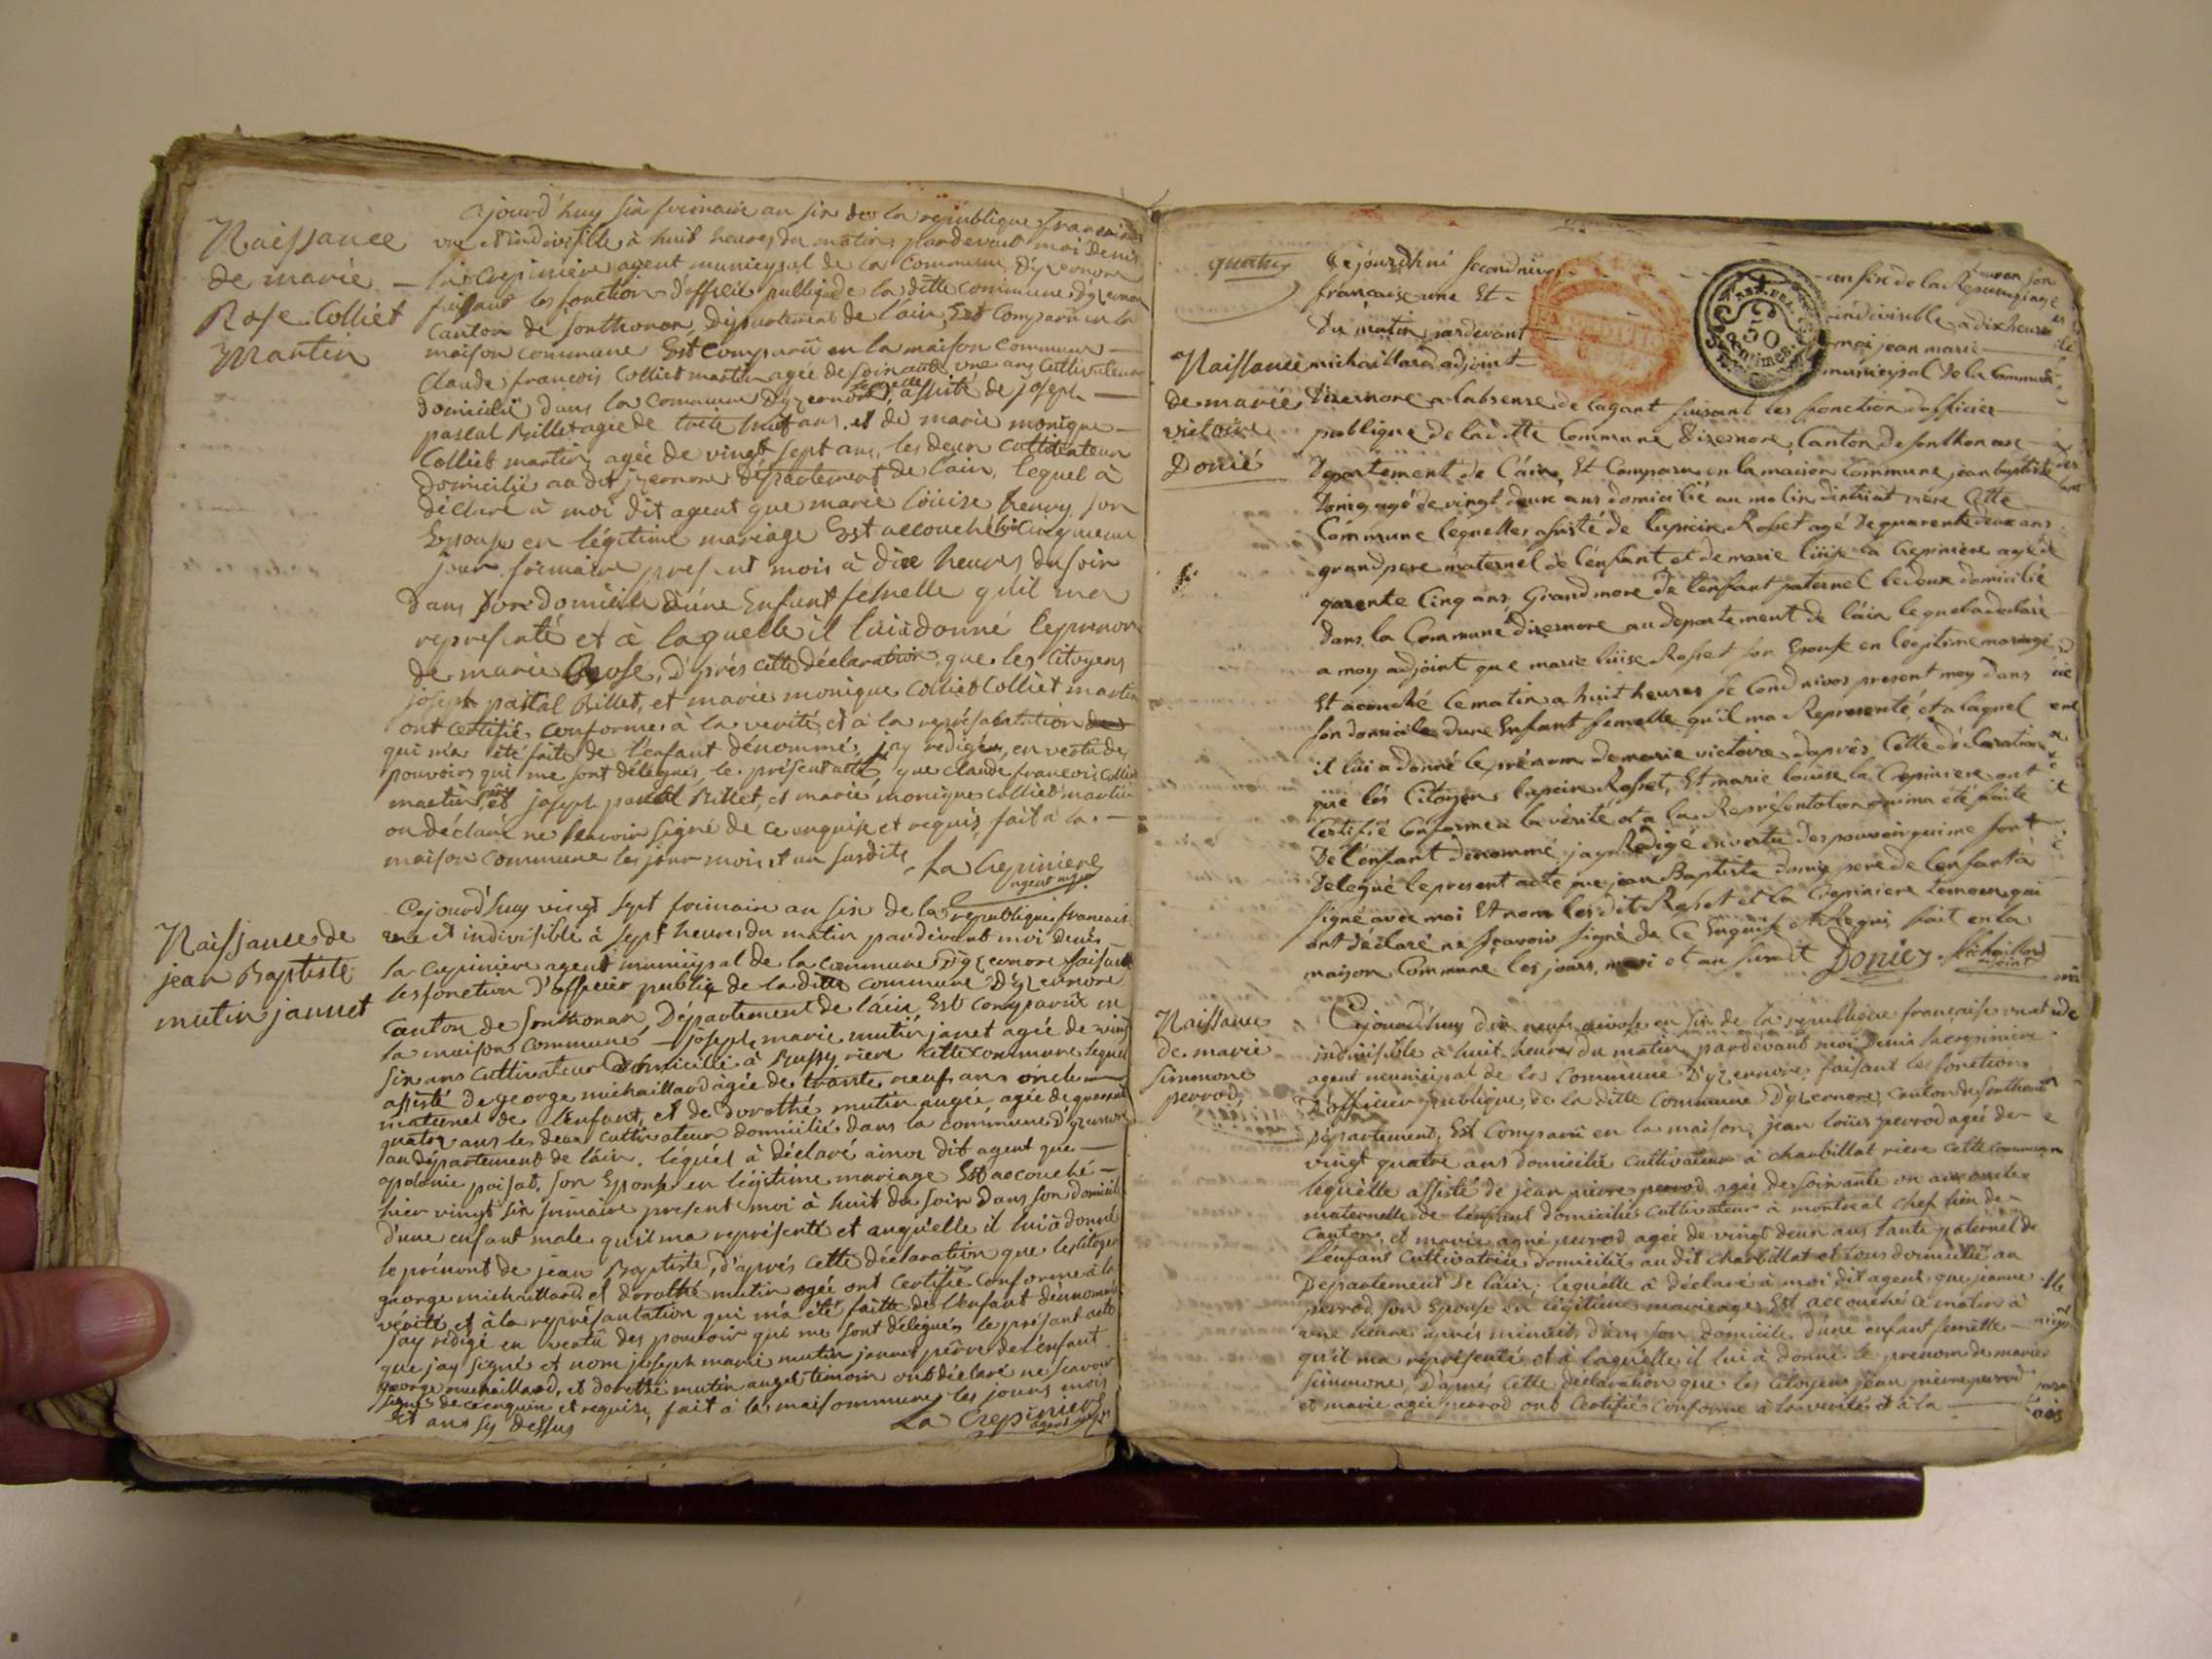 Naissance
de marie
Rose Colliet
Martin
Cejourd'huy six frimaire an six de la republique francaise
une et indivisible à huit heures du matin pardevant moi Denis
la crepiniere agent municypal de la commune D'yzernore
faisant les fonction d'officié publiq de la ditte commune D'yzernor
Canton de Sonthonor, Département de l'ain, Est Comparü en la
maison commune Est comparü en la maison commune
Claude francois Colliet martin agée de soixante une ans Cultivateur
domicilié dans la commune D'yzernore, assisté de joseph
pascal Billet agée de trète huit ans, et de marie monique
Colliet martin, agée de vingt sept ans, les deux cultivateur
domicilié au dit yzernore département de l'ain, lequel à
déclaré à moi dit agent que marie Loüise henry son
Epouse en légitime mariage Est accouchée cinquieme
jour frimaire present mois à dix heures du soir
dans son domicile d'une Enfant femelle qu'il ma
representé et à laquelle il lui à donné le prenom
de marie Rose, D'après cette déclaration que les Citoyens
joseph pascal Billet, et marie monique Colliet Colliet martin
ont certifié conforme à la verité et à la représentation
qui m'a été faite de l'enfant dénommé, jay redigés, en vertu des
pouvoirs qui me sont délégués, le présent acte, que claude francois Colliet
martin, et joseph pascal Billet, et marie monique colliet martin
on déclaré ne scavoir signé de ce enquis et requis, fait à la
maison commune les jour mois et an susdits
La Crepiniere
agent mpal
Naissance de
jean Baptiste
mutin jannet
Cejourd'huy vingt sept frimaire an six de la republique francaise
une et indivisible à sept heures du matin pardevant moi denis
la crepiniere agent municipal de la commune D'yzernore faisant
les fonction d'officier publiq de la ditte commune D'yzernore
Canton de Sonthonar, Département de l'ain, Est comparüe en
la maison commune joseph marie mutin janet agée de vingt
six ans Cultivateur Domicilié à Bussy riere cette commune lequel
assisté de george michaillard agée de trante neuf ans oncle
maternel de l'enfant, et de Dorothé mutin augée agée de quarante
quatre ans les deux cultivateur domicilié dans la commune d'yzernore
au département de l'ain, lequel à déclaré à moi dit agent que
apolonie poisat, son Epouse en légitime mariage Est accouché
hier vingt six frimaire present moi à huit du soir dans son domicile
d'une enfant male qu'il ma représenté et auquelle il lui à donné
le prénont de jean Baptiste, d'après cette déclaration que les citoyen
george michaillard, et dorothé mutin ogée ont certifié conforme à la
verité et à la représantation qui m'a été faitte de l'enfant dénommé
jay rédigé en vertu des pouvoir qui me sont délégués le présant acte
que jay signé et nom joseph marie mutin jannet père de l'enfant
george michaillard, et dorothé mutin auget temoin ont déclaré ne scavoir
signés de ce enquis et requise, fait à la maisommune les jours mois
et ans sy dessus
La Crepiniere
agent mpal
quatres
Naissance
de marie
victoire
Donié
Cejourdhui second nivos
an six de la Republique
francaise une Et
indivisible a dix heures
Du matin pardevant
moi jean marie
michaillard adjoint
municipal de la Commune
Dizernore a labsense de lagant faisant les fonction dofficier
publique de laditte Commune dizernore, Canton de sonthonase
Departement de l'ain, Et Comparu en la maison Commune jean baptiste
Donié agé de vingt deux ans domicilié au molin dintriat riere Cette
Commune lequelles assisté de lupicin Rosset agé de quarente deux ans
grand pere maternel de l'enfant et de marie liüse la Crepiniere agé de
quarente Cinq ans Grand mere de l'enfant paternel les deux domicilié
dans la Commune dizernore au departement de l'ain lequel a declaré
a moy adjoint que marie liüse Rosset son Epouse en legitime mariage
Et acouché le matin a huit heures se Cond nivos present moy dans
son domicile dune Enfant femelle qu'il ma Representé, et a laquel
il lui a donné le prénom de marie victoire daprés Cette déclaration
que lés Citoyen lupcin Rosset, Et marie louise la Crepiniere ont
Certifié Conforme a la vérité et a la Représentation qui ma été faite
De l'enfant dénommé jay Redigé en vertu des pouvoir qui me sont
Delegué le present acte que jean Baptiste Donié pere de lenfant a
signé avec moi Et nom lesdit Rosset et la Crepiniere temoin qui
ont déclaré ne scavoir signé de Ce Enquis et Requis fait en la
maison Commune les jours, moi et an susdit
Doniez Michaillard
adjoint
Naissance
de marie
simmone
perrod
Cejourd'huy dix neufs nivose an six de la republique française une et
indivisible à huit heures du matin pardevant moi Denis lacrepiniere
agent municipal de la Commune D'yzernore, faisant les fonction
D'officier publique, de la ditte Commune D'yzernore, Canton de Sonthonar
département, Est Comparü en la maison, jean loüis perrod agée de
vingt quatre ans domicilié cultivateur à charbillat riere cette Commune
lequelle assisté de jean pierre perrod agée de soixante on ans oncle
maternelle de l'enfant domicilié cultivateur à montreal chef lieu de
Canton, et marie agné perrod agée de vingt deux ans tante paternel de
l'énfant cultivatrice domicilié au dit charbillat et tous domicilié au
Département de l'ain, lequelle à déclaré à moi dit agent que jeanne
perrod son Epouse en légitime marieage Est accouché ce matin à
une heure après minuit dans son domicile d'une enfant femelle
qu'il ma réprésenté et à laquelle il lui à donné le prenom de marie
simmone, d'après Cette declaration que les Citoyen jean pierre perrod
et marie agée perrod ont Certifié Conforme à la verité et à la